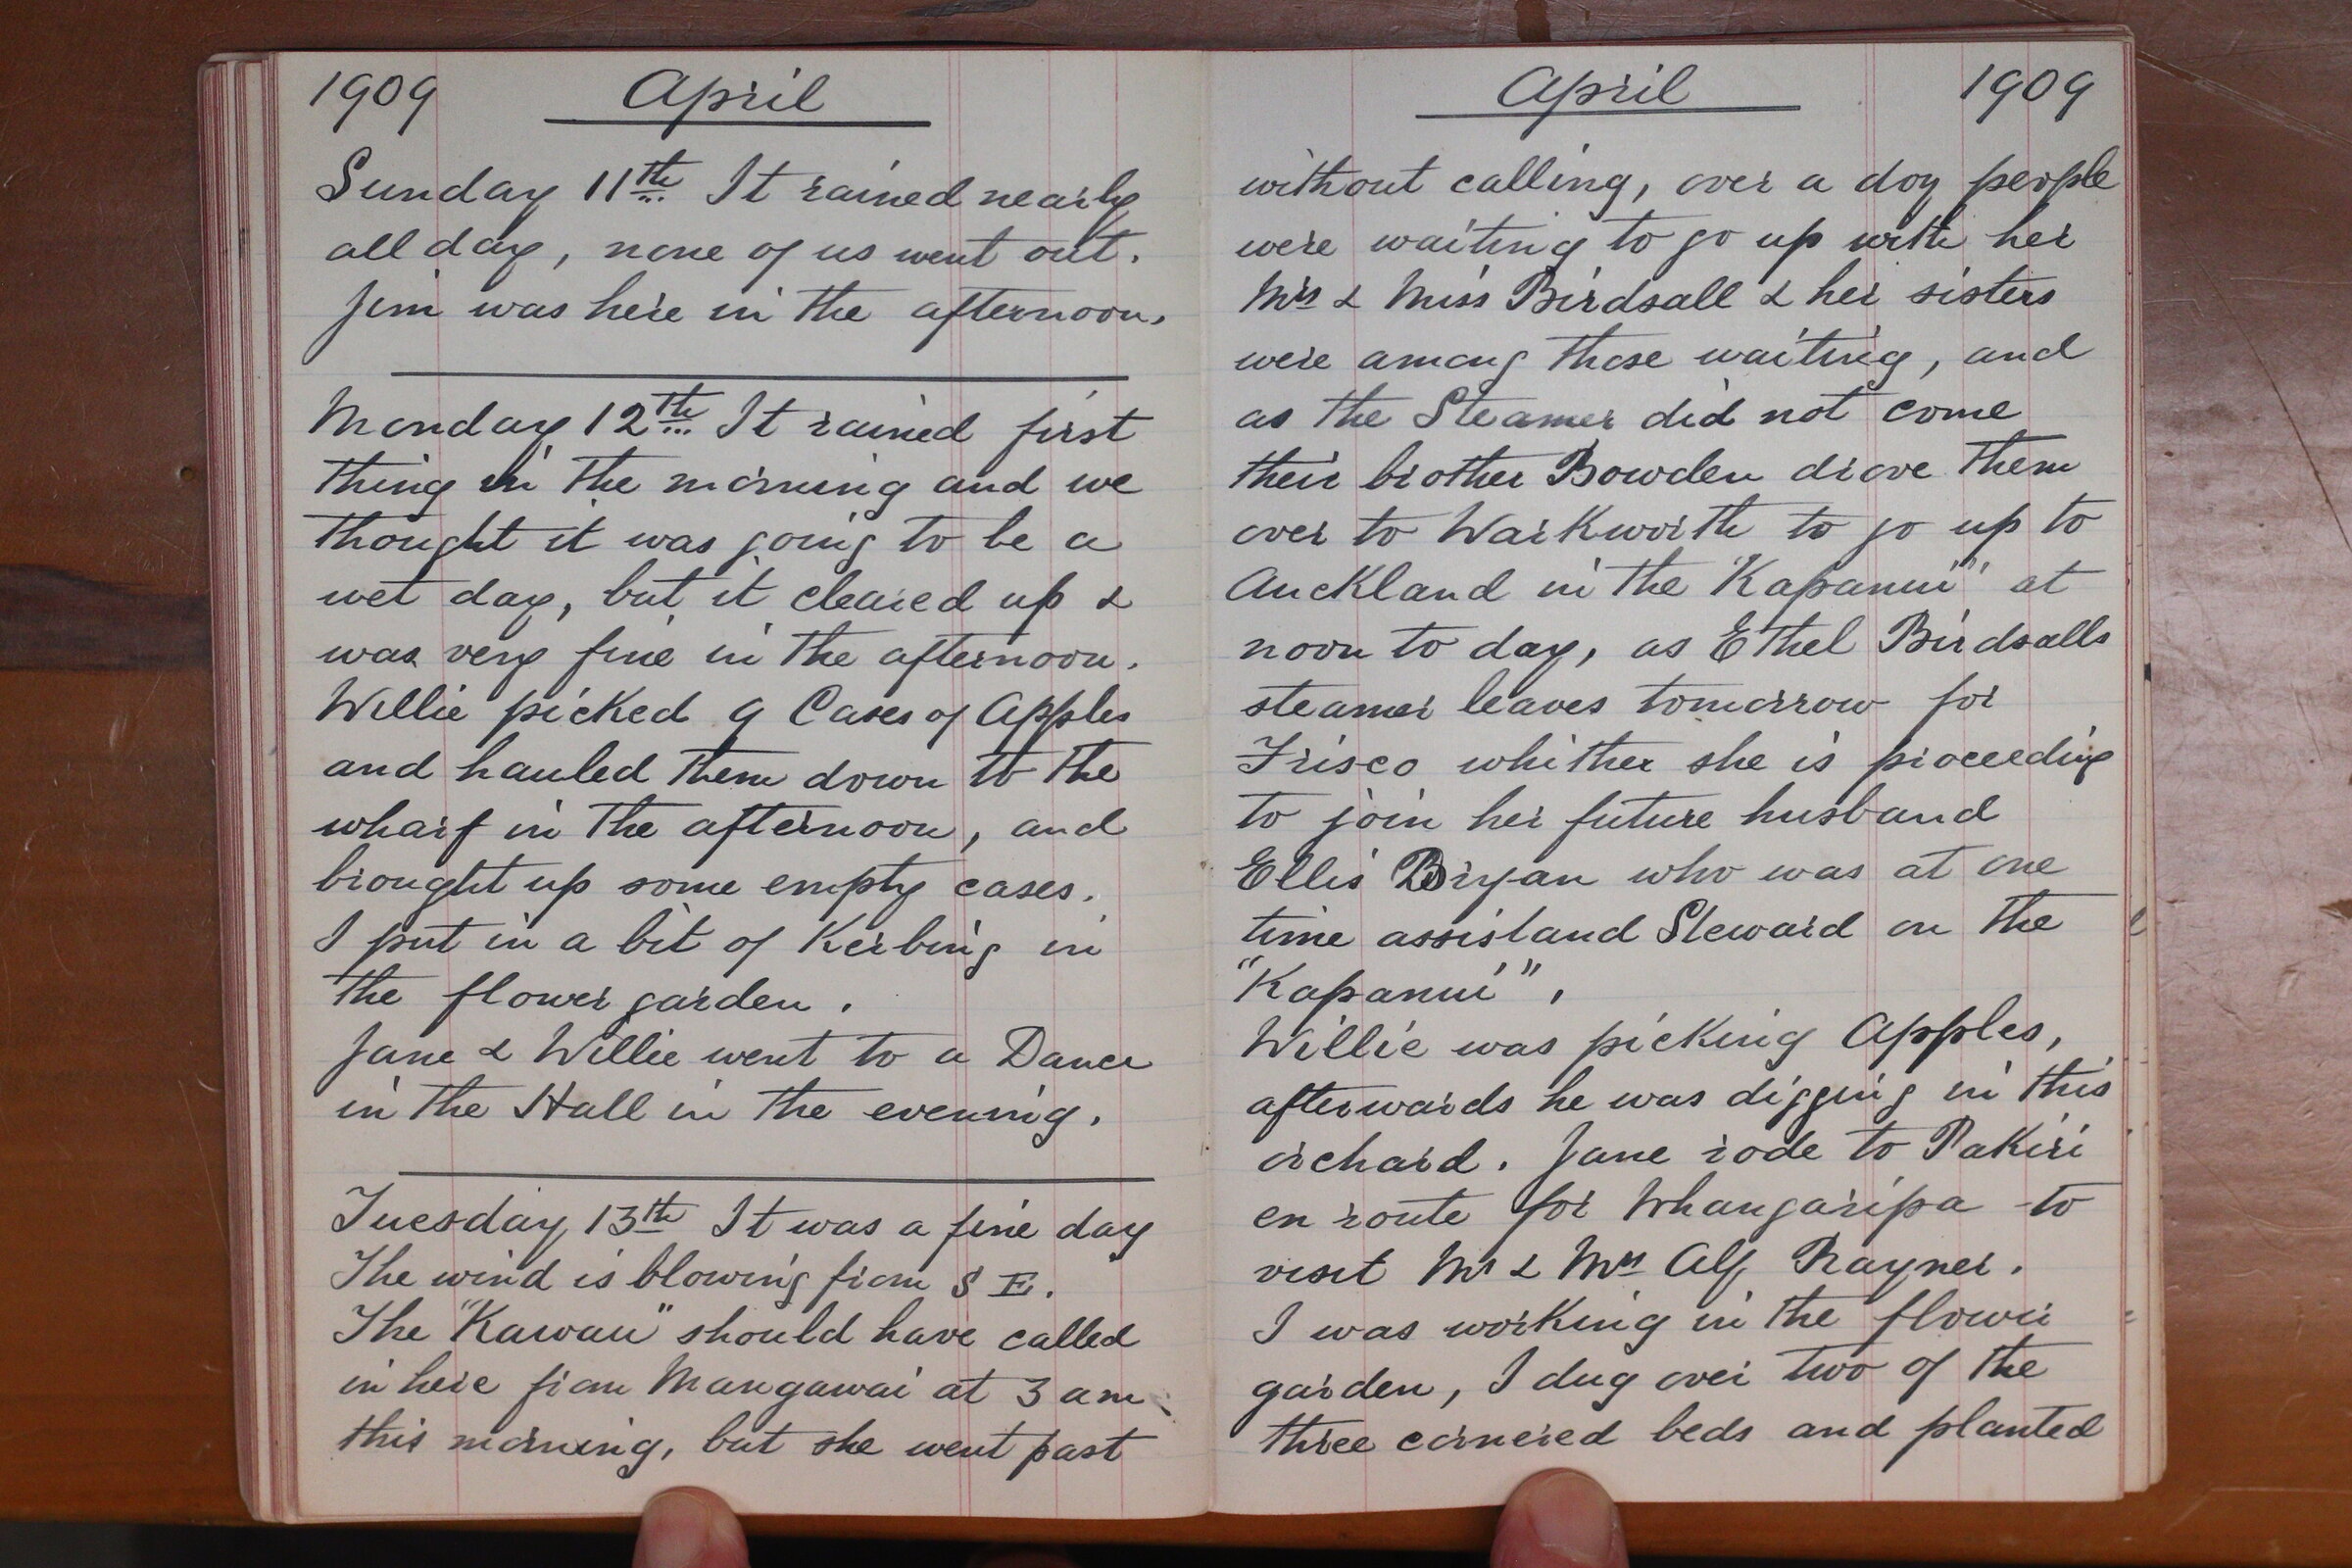 1909 April
Sunday 11th It rained nearly
all day, none of us went out.
Jim was here in the afternoon.
Monday 12th It rained first
thing in the morning and we
thought it was going to be a
wet day, but it cleared up &
was very fine in the afternoon.
Willie picked 9 Cases of Apples
and hauled them down to the
wharf in the afternoon, and
brought up some empty cases.
I put in a bit of Kerbing in
the flower garden.
Jane & Willie went to a Dance
in the Hall in the evening.
Tuesday 13th It was a fine day
The wind is blowing from S E.
The "Kawau" should have called
in here from Mangawai at 3 am
this morning, but she went past
April 1909
without calling, over a doz people
were waiting to go up with her
Mrs & Miss Birdsall & her sisters
were among those waiting, and
as the Steamer did not come
their brother Bowden drove them
over to Warkworth to go up to
Auckland in the "Kapanui" at
noon to day, as Ethel Birdsalls
steamer leaves tomorrow for
Frisco whither she is proceeding
to join her future husband
Ellis Bryan who was at one
time assistand Steward on the
"Kapanui",
Willie was picking Apples,
afterwards he was digging in this
orchard. Jane rode to Pakiri
en route for Whangaripa to
visit Mr & Mrs Alf Rayner.
I was working in the flower
garden, I dug over two of the
three cornered beds and planted